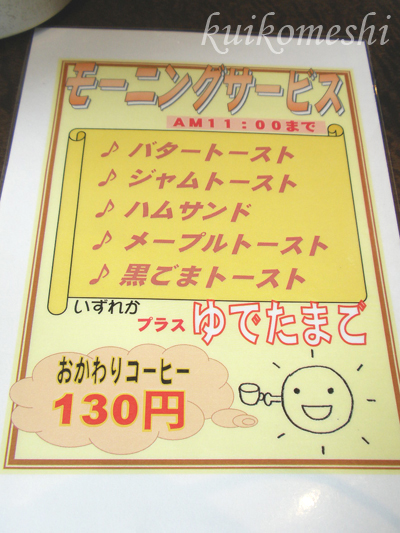 kuikomeshi
モーニングサービス
AM11:00まで
♪ バタートースト
♪ ジャムトースト
♪ ハムサンド
♪ メープルトースト
♪ 黒ごまトースト
いずれか
プラス ゆでたまご
おかわりコーヒー
130円